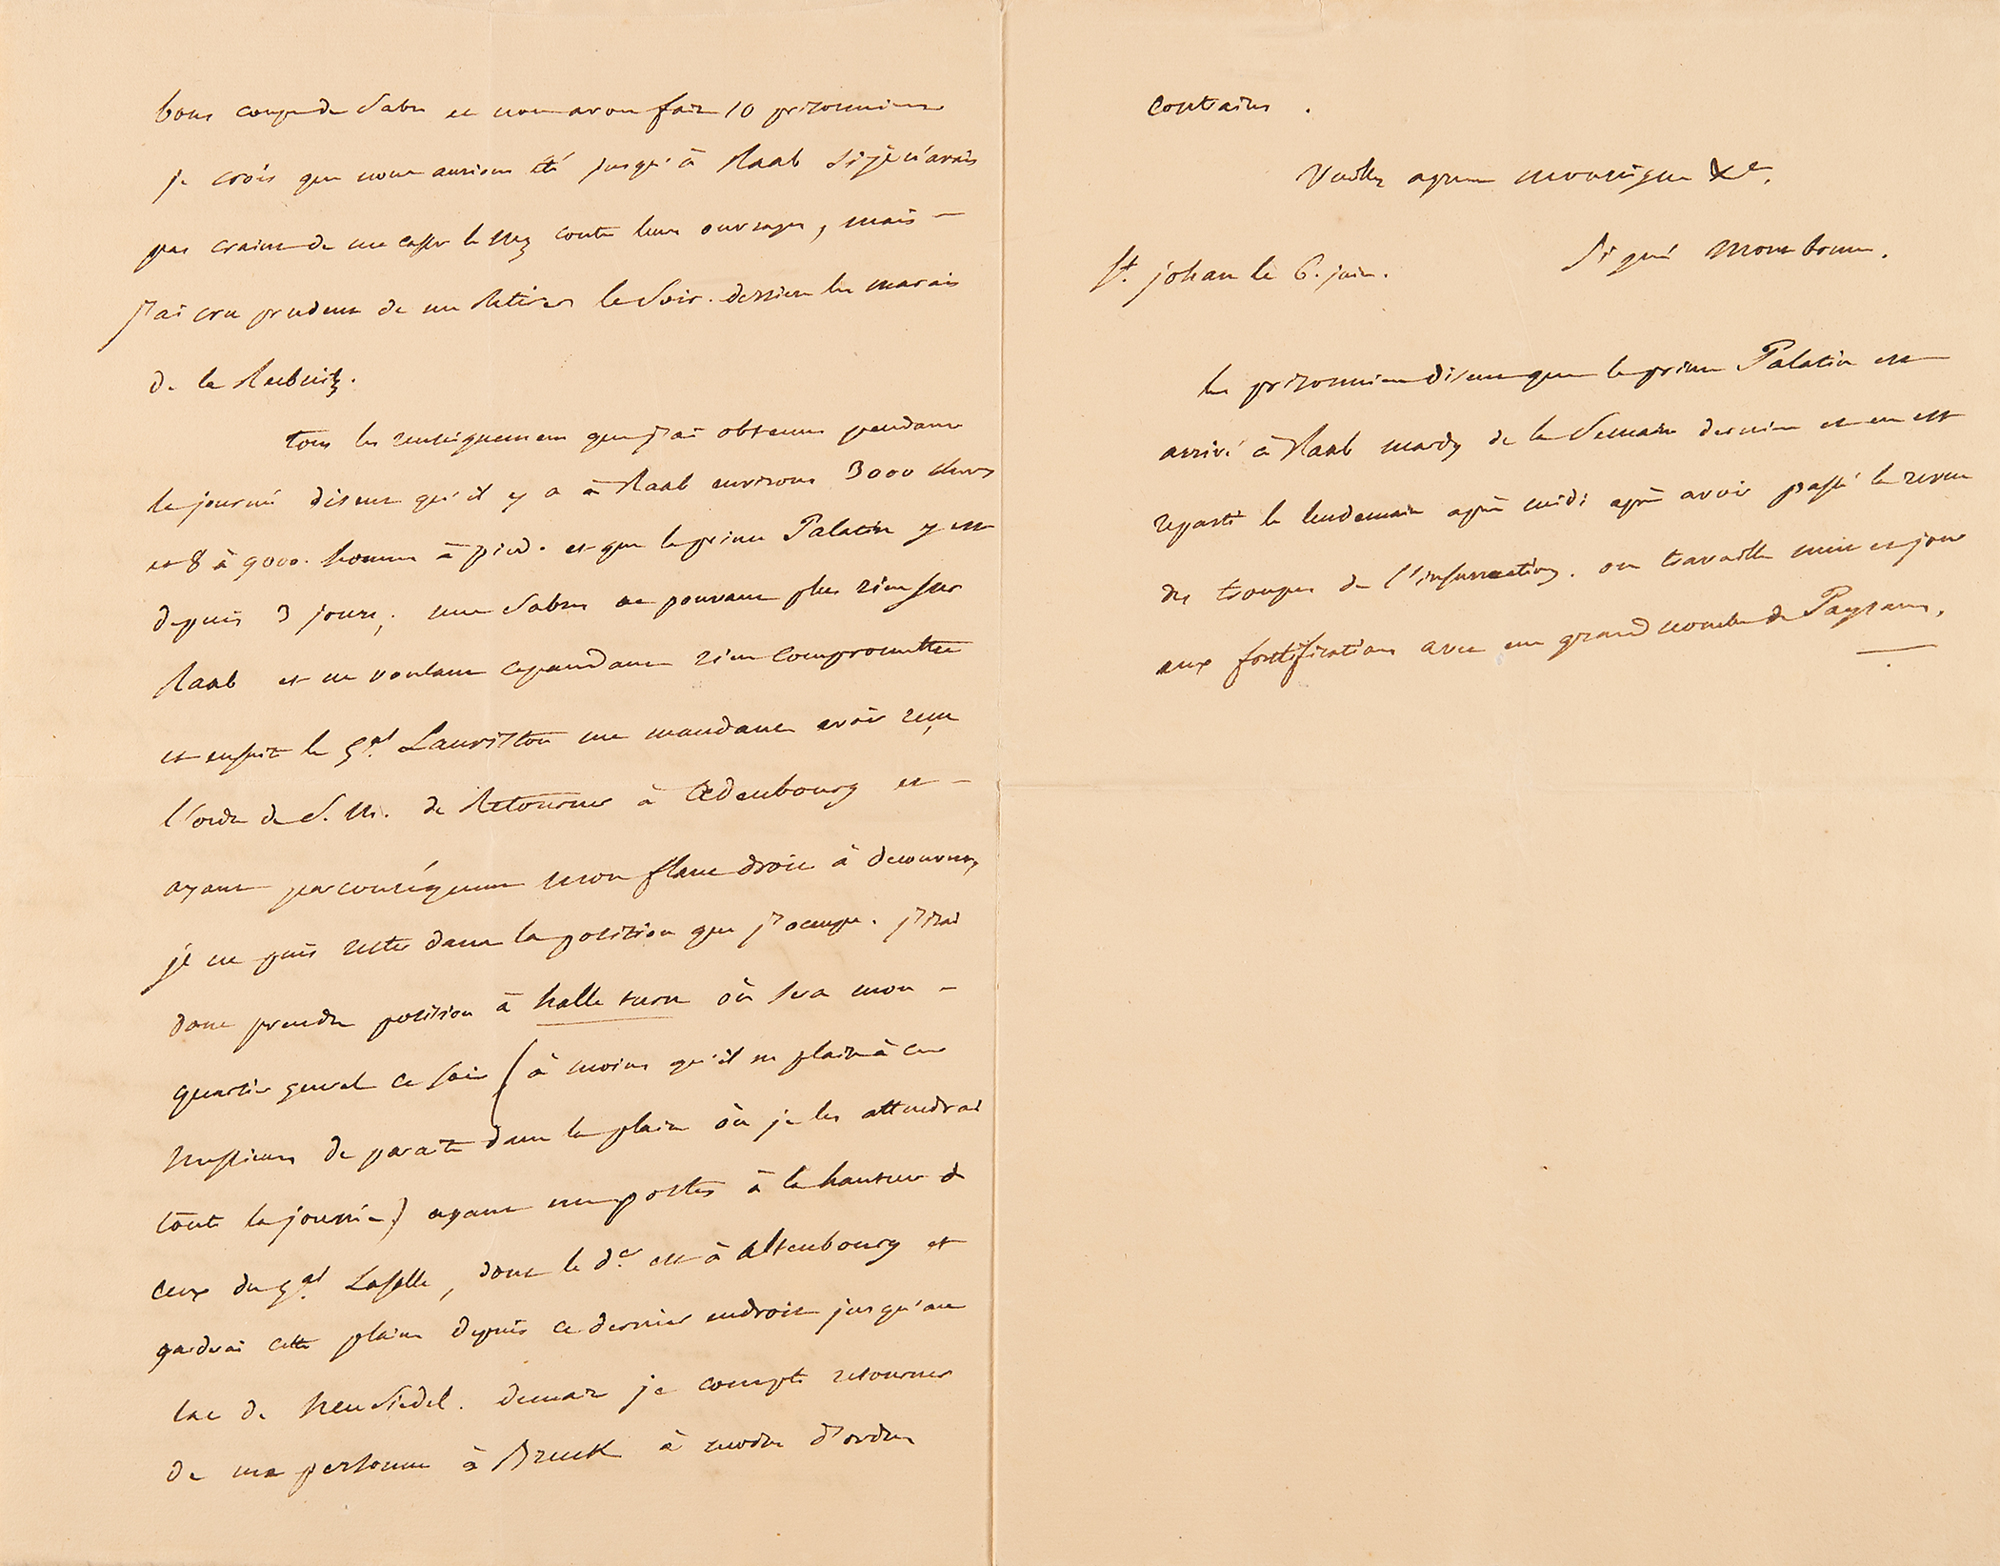 bons coups de Sabre et nous avons fait 10 prisonniers
je crois que nous aurions été jusqu'à Raab si je n'avais
pas craint de me casser le Nez contre leurs ouvrages, mais —
j'ai cru prudent de me Retirer le Soir. derrière les marais
de la Rabnitz.
tous les renseignemens que j'ai obtenus pendant
la journé disent qu'il y a à Raab environs 3000 chevx
et 8 à 9000. hommes à pied. et que le prince Palatin y est
depuis 3 jours; mes Sabres ne pouvant plus rien sur
Raab et ne voulant cependant rien compromettre
et ensuite le Gal. Lauriston me mandant avoir reçu
l'ordre de S. M. de Retourner à Œdenbourg et —
ayant par conséquent mon flanc droit à découvert,
je ne puis rester dans la position que j'occupe. j'irai
donc prendre position à halle turn où sera mon —
quartier genral ce soir (à moins qu'il ne plaise à ces
Messieurs de paraitre dans la plaine où je les attendrai
toute la journée) ayant mes postes à la hauteur de
ceux du gal. Lasalle, dont le d.er est à Altenbourg et
garderai cette plaine depuis ce dernier endroit jusqu'au
lac de Neu Siedel. demain je compte retourner
de ma personne à Bruck à moins d'ordres
contraires.
Veuillez agréer monseigneur &e.
St. johan le 6. juin.
Signé Montbrun.
les prisonniers disent que le prince Palatin est
arrivé à Raab mardy de la Semaine dernière et en est
reparti le lendemain après midi après avoir passé la revue
des troupes de l'insurrection. on travaille nuit et jour
aux fortifications avec un grand nombre de Paysans.